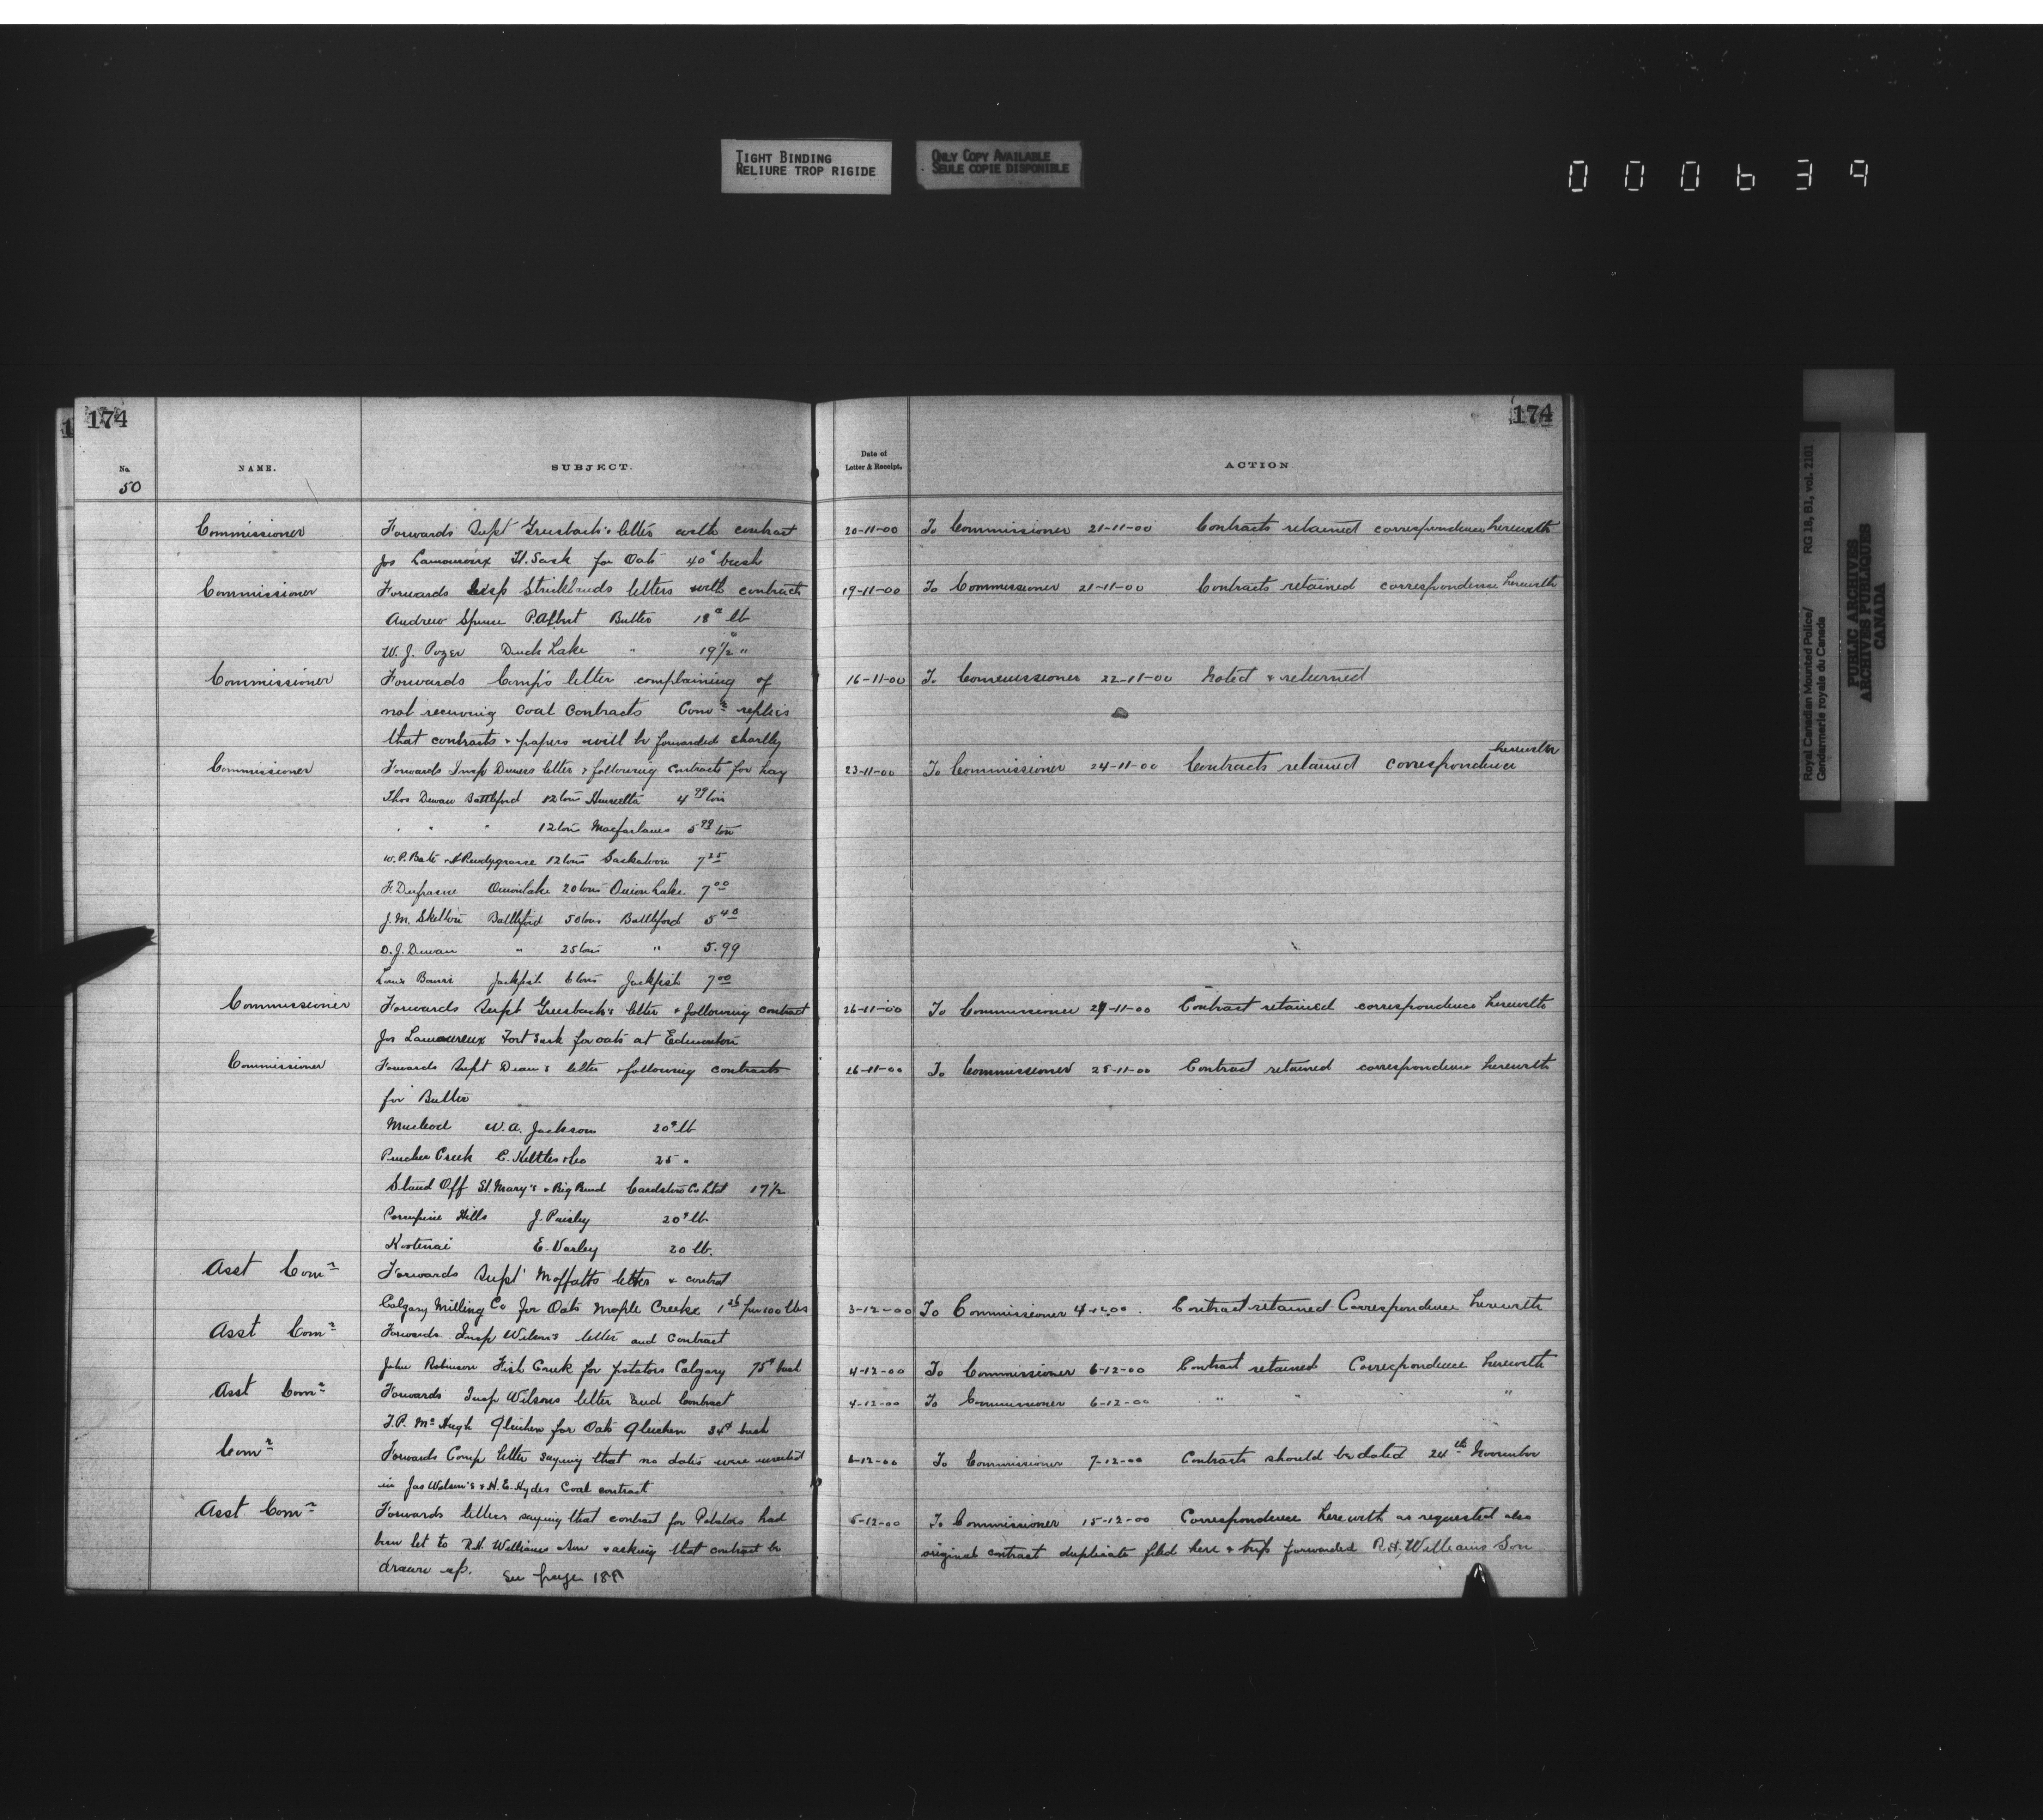 TIGHT BINDING
RELIURE TROP RIGIDE
ONLY COPY AVAILABLE
SEULE COPIE DISPONIBLE
000639
174
174
No.
NAME.
SUBJECT.
Date of
Letter & Receipt.
ACTION
50
Commissioner Forwards Supt Griesbach's letter with contract 20-11-00 To Commissioner 21-11-00 Contracts retained correspondence herewith
Jos Lamoureux Ft. Sask for Oats 40¢ bush
Commissioner Forwards Insp Stricklands letters with contracts 19-11-00 To Commissioner 21-11-00 Contracts retained correspondence herewith
Andrew P.Albert Butter 18¢ lb
W. J. Pozer Duck Lake " 19½ "
Commissioner Forwards Comp's letter complaining of 16-11-00 To Commissioner 22-11-00 Noted & returned
not receiving Coal Contracts Comr replies
that contracts & papers will be forwarded shortly
Commissioner Forwards Insp letter & following Contracts for hay 23-11-00 To Commissioner 24-11-00 Contracts retained correspondence herewith
Thos Dewan Battleford 12 tons Henrietta 4 99 ton
" " " 12 tons Macfarlanes 5 99 ton
W. P. Bate & 12 tons Saskatoon 7 25
F. Dufresne Onion Lake 20 tons Onion Lake 7 00
J. M. Skelton Battleford 50 tons Battleford 5 40
D. J. Dewan " 25 tons " 5.99
Louis Jackfish 6 tons Jackfish 7 00
Commissioner Forwards Supt Griesbach's letter & following contract 26-11-00 To Commissioner 27-11-00 Contract retained correspondence herewith
Jos Lamoureux Fort Sask for oats at Edmonton
Commissioner Forwards Supt Dean's letter & following contracts 26-11-00 To Commissioner 28-11-00 Contract retained correspondence herewith
for Butter
Macleod W. A. Jackson 20¢ lb
Pincher Creek C. Kettles & Co 25 "
Stand Off St. Mary's & Big Bend Cardston Co Ltd 17½
Porcupine Hills J. Paisley 20¢ lb
Kootenai E. Varley 20 lb.
Asst Comr Forwards Supt Moffatts letter & contract
Calgary Milling Co for Oats Maple Creek per 100 lbs 3-12-00 To Commissioner 4-12-00. Contract retained. Correspondence herewith
Asst Comr Forwards Insp Wilson's letter and contract
John Robinson Fish Creek for potatoes Calgary 75¢ bush 4-12-00 To Commissioner 6-12-00 Contract retained Correspondence herewith
Asst Comr Forwards Insp Wilsons letter and Contract 4-12-00 To Commissioner 6-12-00 " " "
T. P. McHugh Gleichen for Oats Gleichen 34¢ bush
Comr Forwards Comp letter saying that no dates were inserted 6-12-00 To Commissioner 7-12-00 Contracts should be dated 24th November
in Jas Wilson's & H. E. Hydes Coal contract
Asst Comr Forwards letters saying that contract for Potatoes had 5-12-00 To Commissioner 15-12-00 Correspondence herewith as requested also
been let to R.H. Williams & Son & asking that contract be original contract duplicate filed here & forwarded R.H. Williams Son
drawn up. See page 189
Royal Canadian Mounted Police/ RG 18, B1, vol. 2101
Gendarmerie royale du Canada
PUBLIC ARCHIVES
ARCHIVES PUBLIQUES
CANADA